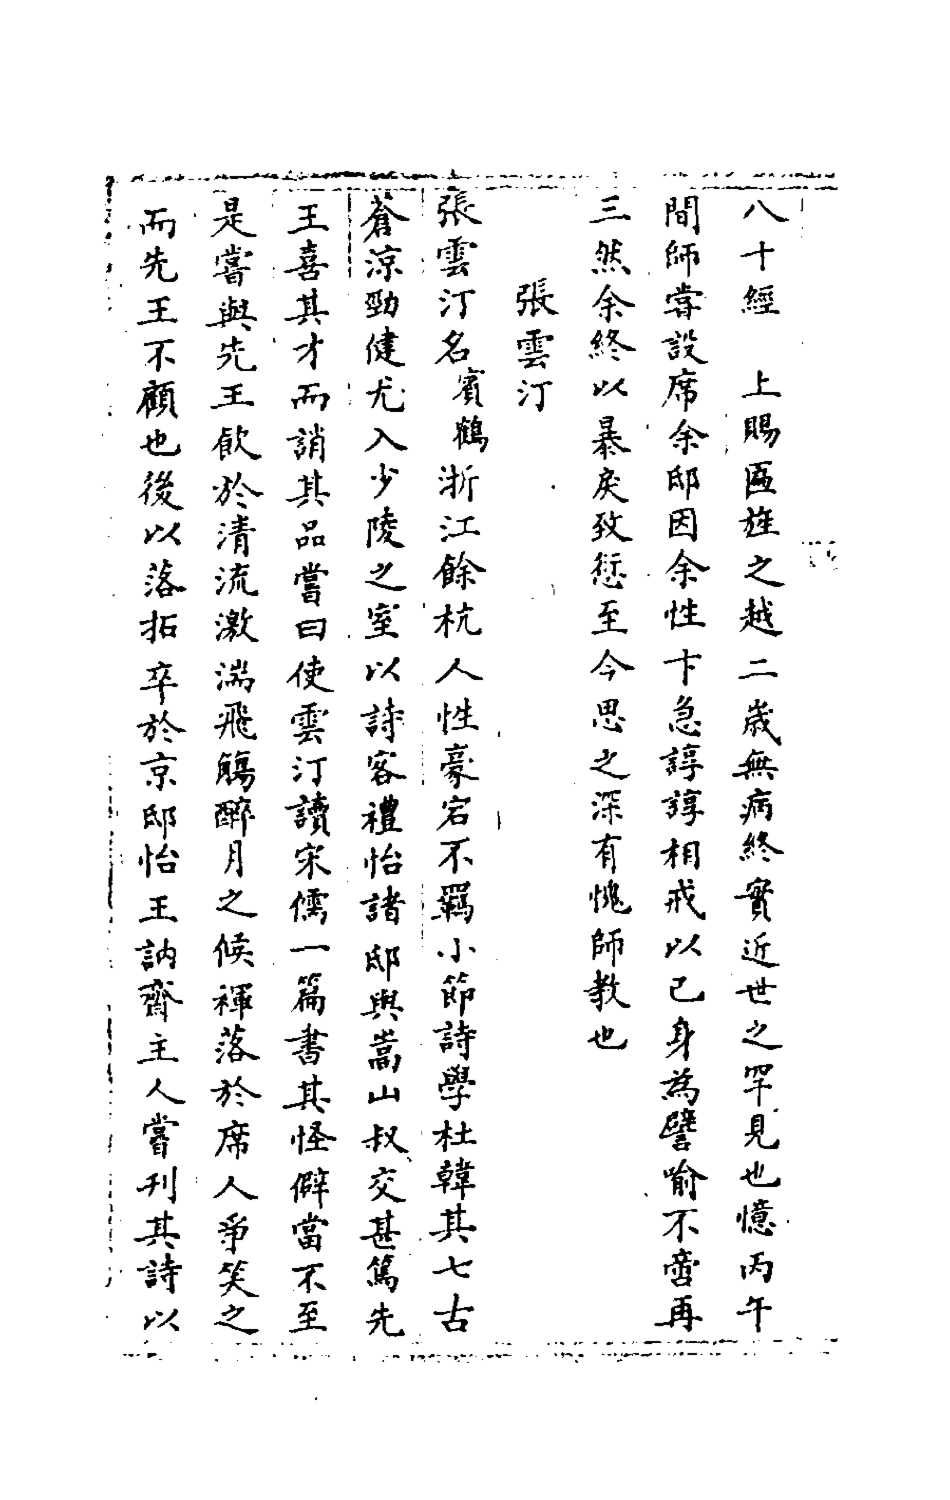 八十經　上賜匾旌之越二歲無病終實近世之罕見也憶丙午
間師嘗設席余邸因余性卞急諄諄相戒以己身為譬喻不啻再
三然余終以暴戾致愆至今思之深有愧師教也
張雲汀
張雲汀名賓鶴浙江餘杭人性豪宕不羈小節詩學杜韓其七古
蒼涼勁健尤入少陵之室以詩客禮怡諸邸與嵩山叔交甚篤先
王喜其才而誚其品嘗曰使雲汀讀宋儒一篇書其怪僻當不至
是嘗與先王飲於清流激湍飛觴醉月之候褌落於席人爭笑之
而先王不顧也後以落拓卒於京邸怡王訥齋主人嘗刊其詩以